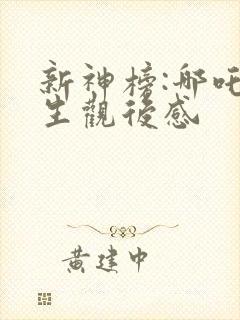 新神榜:哪吒
生觀後感
黃建中